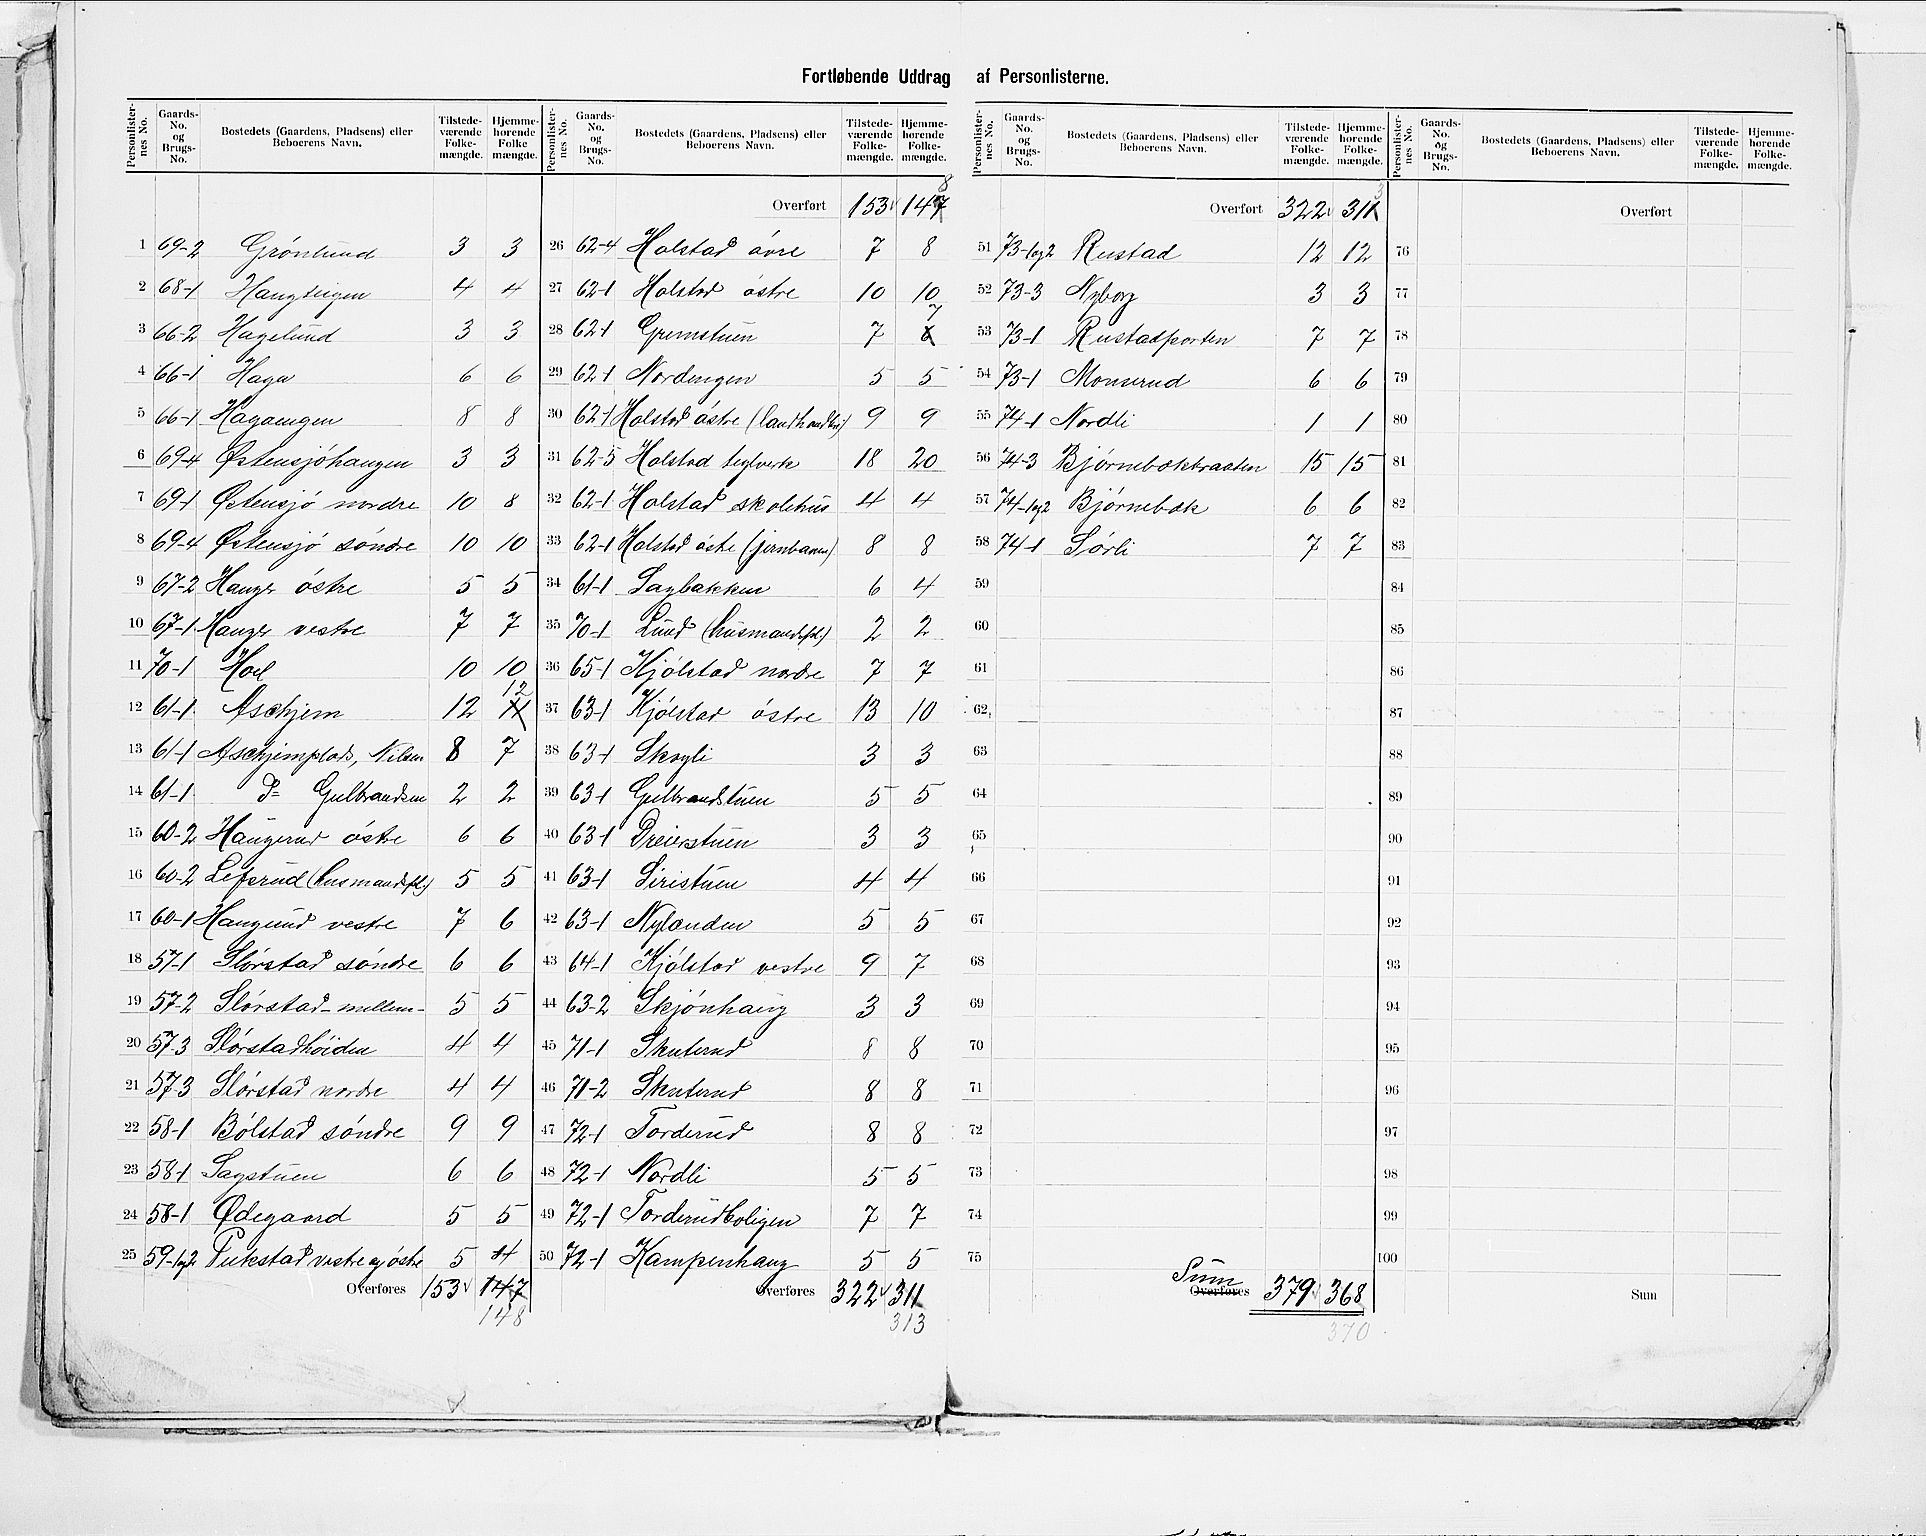 Fortløbende Uddrag af Personlisterne.
Personlister-nes No. Gaards-No. og Brugs-No. Bostedets (Gaardens, Pladsens) eller Beboerens Navn. Tilstede-værende Folke-mængde. Hjemme-hørende Folke mængde.
1 69-2 Grönlund 3 3
2 68-1 Haugteigen 4 4
3 66-2 Hagelund 3 3
4 66-1 Haga 6 6
5 66-1 Hagaengen 8 8
6 69-4 Østensjöhaugen 3 3
7 69-1 Østensjö nordre 10 8
8 69-4 Østensjö söndre 10 10
9 67-2 Hauger östre 5 5
10 67-1 Hauger vestre 7 7
11 70-1 Hoel 10 10
12 61-1 Aschjem 12 11 12
13 61-1 Aschjemplads, Nilsen 8 7
14 61-1 Do Gulbrandsen 2 2
15 60-2 Haugerud östre 6 6
16 60-2 Lefsrud (husmandspl.) 5 5
17 60-1 Haugerud vestre 7 6
18 57-1 Slörstad söndre 6 6
19 57-2 Slörstad-mellem- 5 5
20 57-3 Slörstadhöiden 4 4
21 57-3 Slörstad nordre 4 4
22 58-1 Bölstad söndre 9 9
23 58-1 Sagstuen 6 6
24 58-1 Ødegaard 5 5
25 59-1og2 Pukstad vestre og östre 5 4
Overføres 153 147
148
Personlister-nes No. Gaards-No. og Brugs-No. Bostedets (Gaardens, Pladsens) eller Beboerens Navn. Tilstede-værende Folke-mængde. Hjemme-hørende Folke-mængde.
Overført 153 147 8
26 62-4 Holstad övre 7 8
27 62-1 Holstad östre 10 10
28 62-1 Gremstuen 7 6 7
29 62-1 Nordengen 5 5
30 62-1 Holstad östre (landhandleri) 9 9
31 62-5 Holstad teglverk 18 20
32 62-1 Holstad skolehus 4 4
33 62-1 Holstad östre (jernbanen) 8 8
34 61-1 Sagbakken 6 4
35 70-1 Lund (husmandspl.) 2 2
36 65-1 Kjölstad nordre 7 7
37 63-1 Kjölstad östre 13 10
38 63-1 Skogli 3 3
39 63-1 Gulbrandstuen 5 5
40 63-1 Dreierstuen 3 3
41 63-1 Siristuen 4 4
42 63-1 Nylænden 5 5
43 64-1 Kjölstad vestre 9 7
44 63-2 Skjönhaug 3 3
45 71-1 Skuterud 8 8
46 71-2 Skuterud 8 8
47 72-1 Torderud 8 8
48 72-1 Nordli 5 5
49 72-1 Torderudboligen 7 7
50 72-1 Kampenhaug 5 5
Overføres 322 311
313
Personlister-nes No. Gaards-No. og Brugs-No. Bostedets (Gaardens, Pladsens) eller Beboerens Navn. Tilstede-værende Folke-mængde. Hjemme-hørende Folke-mængde.
Overført 322 311 3
51 73-1og2 Rustad 12 12
52 73-3 Nyborg 3 3
53 73-1 Rustadporten 7 7
54 73-1 Monserud 6 6
55 74-1 Nordli 1 1
56 74-3 Björnebækbraaten 15 15
57 74-1og2 Björnebæk 6 6
58 74-1 Sörli 7 7
59
60
61
62
63
64
65
66
67
68
69
70
71
72
73
74
75
Sum
Overføres 379 368
370
Personlister-nes No. Gaards-No. og Brugs-No. Bostedets (Gaardens, Pladsens) eller Beboerens Navn. Tilstede-værende Folke-mængde. Hjemme-hørende Folke-mængde.
Overført
76
77
78
79
80
81
82
83
84
85
86
87
88
89
90
91
92
93
94
95
96
97
98
99
100
Sum